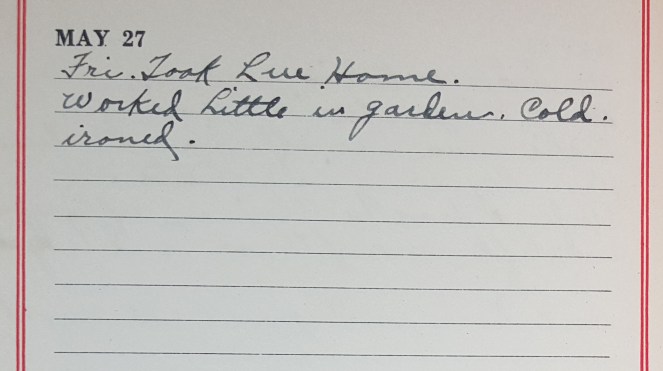 MAY 27
Fri. Took Lue Home.
Worked Little in garden. Cold.
ironed.